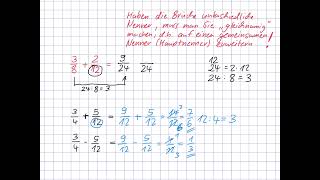 Haben die Brüche unterschiedliche
Nenner, muss man sie „gleichnamig"
machen, d.h. auf einen gemeinsamen
Nenner (Hauptnenner) erweitern!
3/8 + 2/12 = 9/24 /24
12
24 = 2·12
24 : 8 = 3
24 : 8 = 3
3/4 + 5/12 = 9/12 + 5/12 = 14/12 7/6 = 7/6 12:4 = 3
3/4 - 5/12 = 9/12 - 5/12 = 4/12 1/3 = 1/3